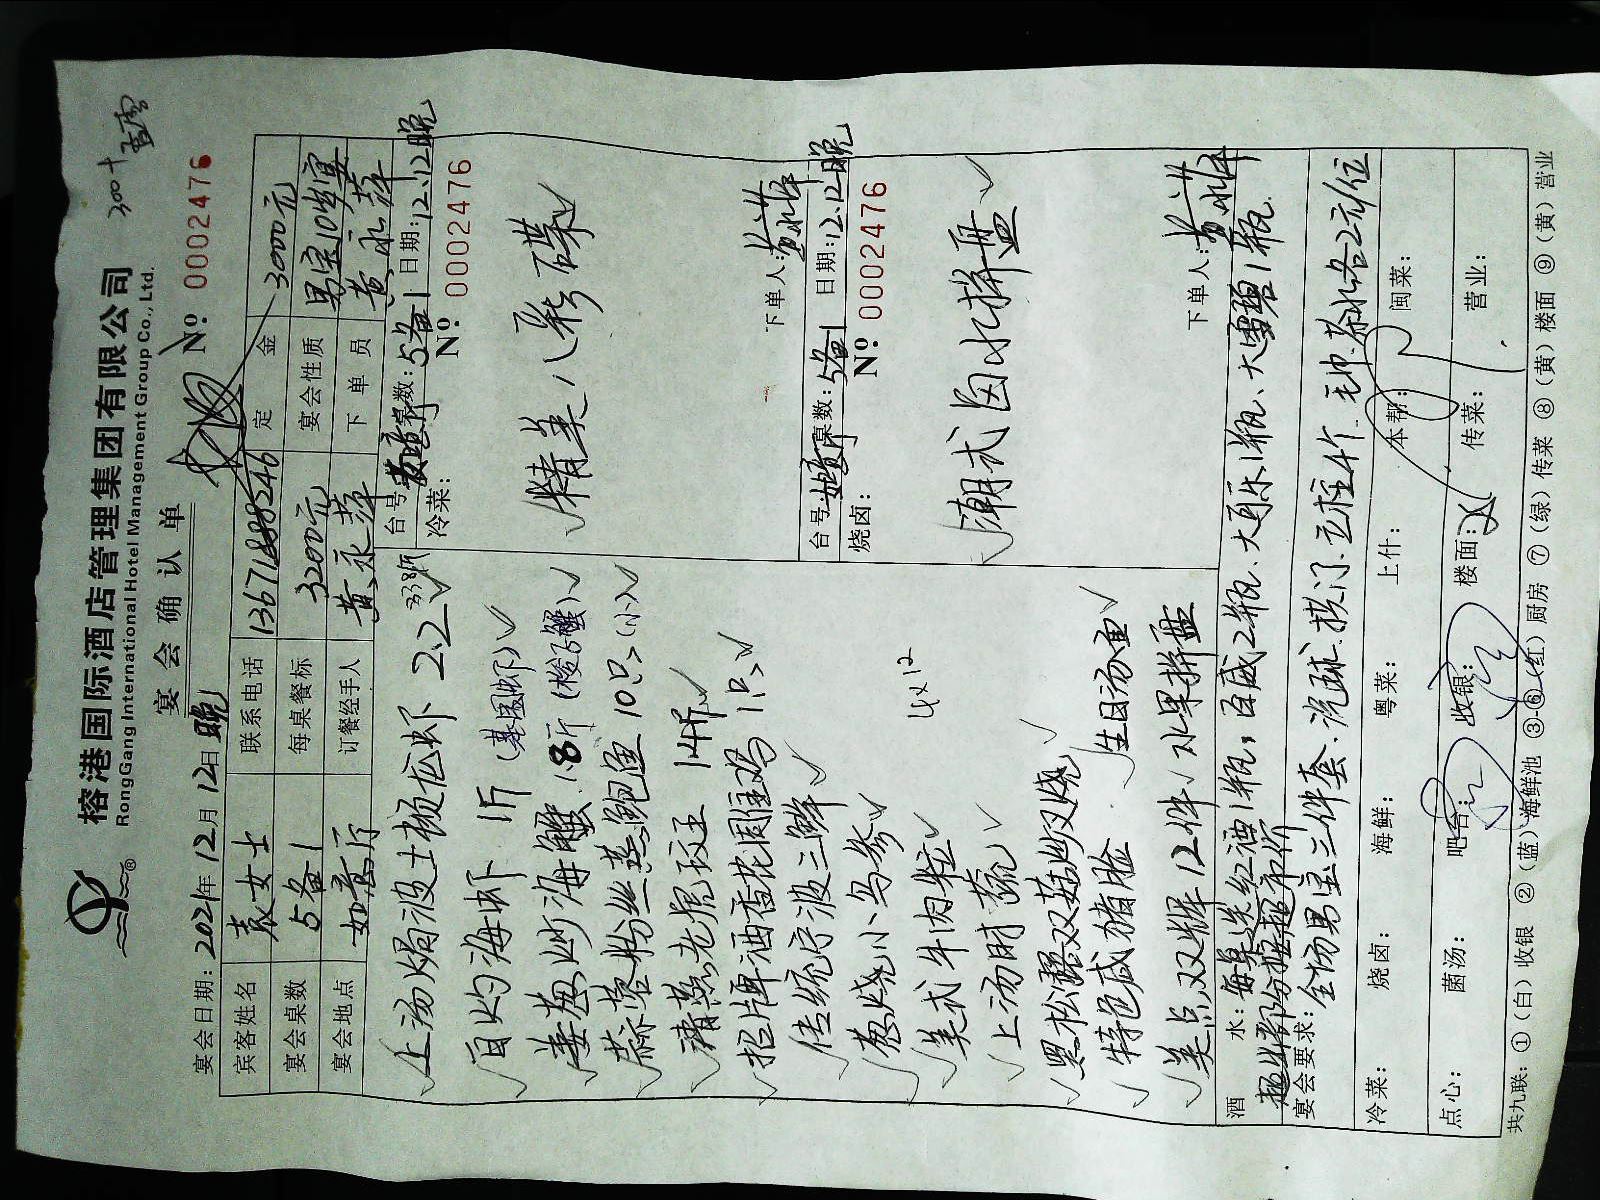 榕港国际酒店管理集团有限公司
RongGang International Hotel Management Group Co., Ltd.
宴会确认单
№: 0002476
宴会日期: 2021年12月12日晚
宾客姓名 袁女士 联系电话 定金 3000元
宴会桌数 5备1 每桌餐标 3200元 宴会性质 男宝10岁宴
宴会地点 如意厅 订餐经手人 黄永萍 下单员 黄永萍
上汤焗波士顿龙虾 2.2
白灼海虾 1斤 (基围虾)
姜葱炒海蟹 1.8斤 (梭子蟹)
蒜蓉粉丝蒸鲍鱼 10只 (小)
清蒸老虎斑 1.4斤
招牌酒香花雕鸡 1只
传统疗波三鲜
葱烧小乌参
美式牛肉粒 4x12
上汤时蔬
黑松露双菇炒叉烧
特色咸猪脸 生日汤面
美点双辉 12件 水果拼盘
台号: 如意厅 桌数: 5备1 日期: 12.12晚
冷菜: № 0002476
精美八彩碟
下单人:
台号: 如意厅 桌数: 5备1 日期: 12.12晚
烧卤: № 0002476
潮式卤水拼盘
下单人:
酒水: 每桌送红酒1瓶, 百威2瓶、大可乐1瓶、大雪碧1瓶.
超出部分按超市价
宴会要求: 全场男宝三件套. 汽球. 拱门. 立柱4个. 毛巾. 茶水各2元/位
冷菜: 烧卤: 海鲜: 粤菜: 上什: 本帮: 闽菜:
点心: 菌汤: 吧台: 收银: 楼面: 传菜: 营业:
共九联: ①(白)收银 ②(蓝)海鲜池 ③-⑥(红)厨房 ⑦(绿)传菜 ⑧(黄)楼面 ⑨(黄)营业